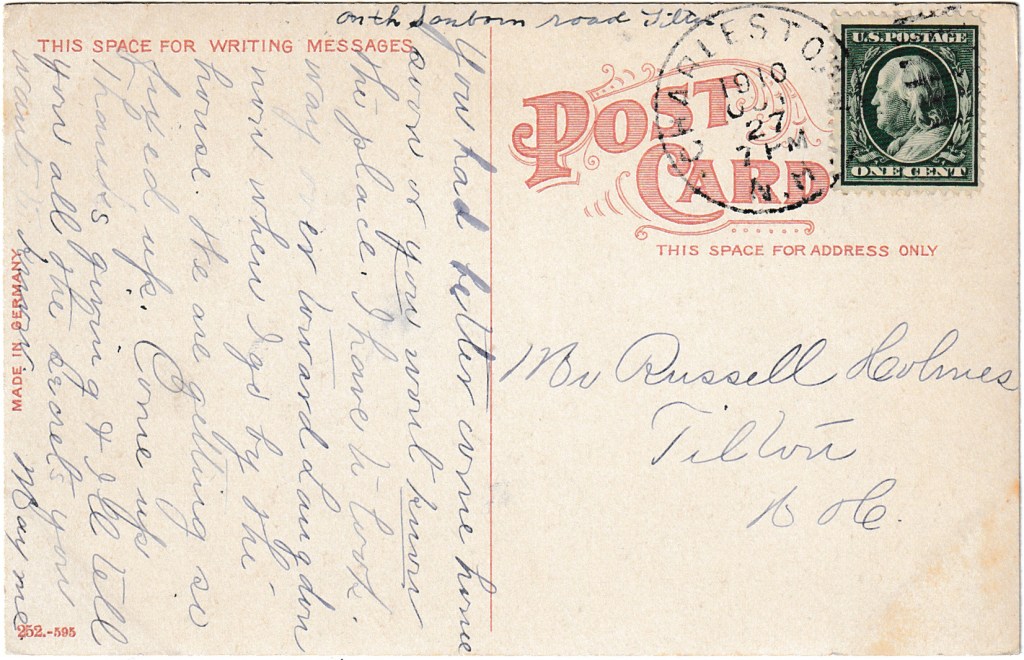 on th Sanborn road Tilton
THIS SPACE FOR WRITING MESSAGES
You had better come home
soon or you wont know
the place. I have to look
way over toward Langdon
now when I go by the
house. the are getting so
fixed up. Come up
Thanksgiving & I'll tell
you all the secrets you
want to know.
Mayme
MADE IN GERMANY
252.-595
POST CARD
CHARLESTO
1910
27
7 PM
N.H.
U.S. POSTAGE
ONE CENT
THIS SPACE FOR ADDRESS ONLY
Mr Russell Holmes
Tilton
N H.